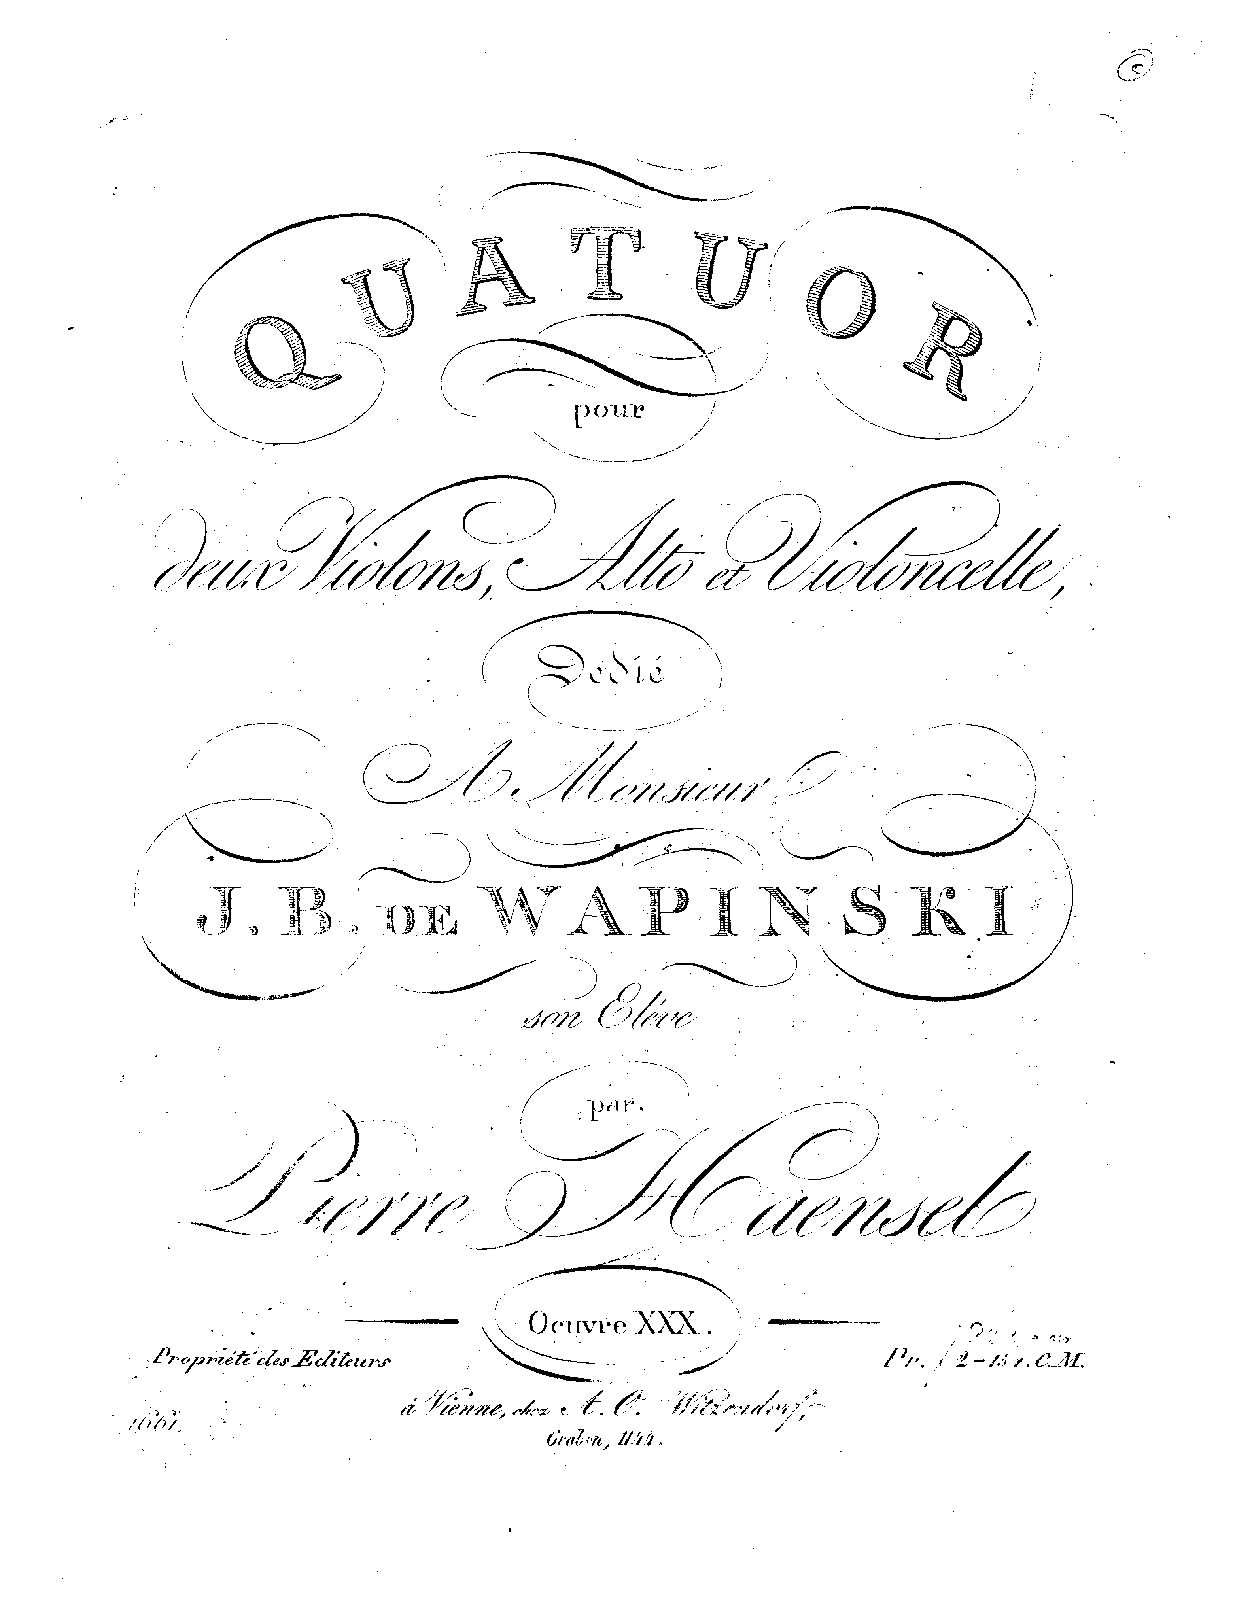 QUATUOR
pour
deux Violons, Alto et Violoncelle,
Dedié
A Monsieur
J. B. DE WAPINSKI
son Elève
par
Pierre Haensel
Oeuvre XXX.
Propriété des Editeurs
Pr. 2-15 x. C.M.
à Vienne, chez A. O. Witzendorf,
Graben, 1144.